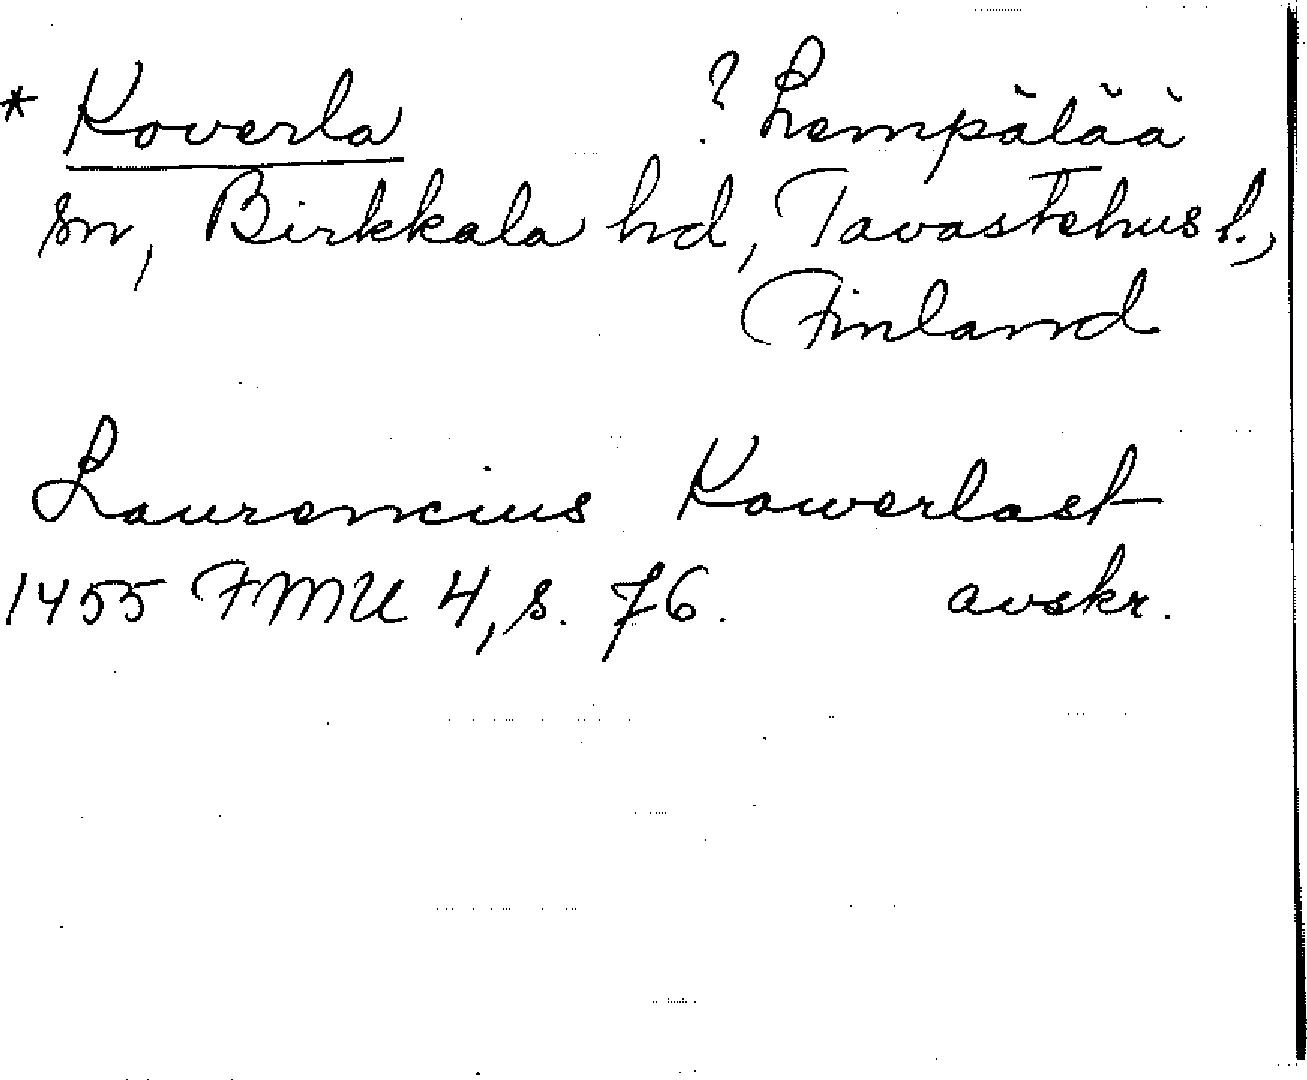 * Koverla ? Lempälää
sn, Birkkala hd, Tavastehus l.,
Finland
Laurencius Kowerlast
1455 FMU 4, s. 76. avskr.